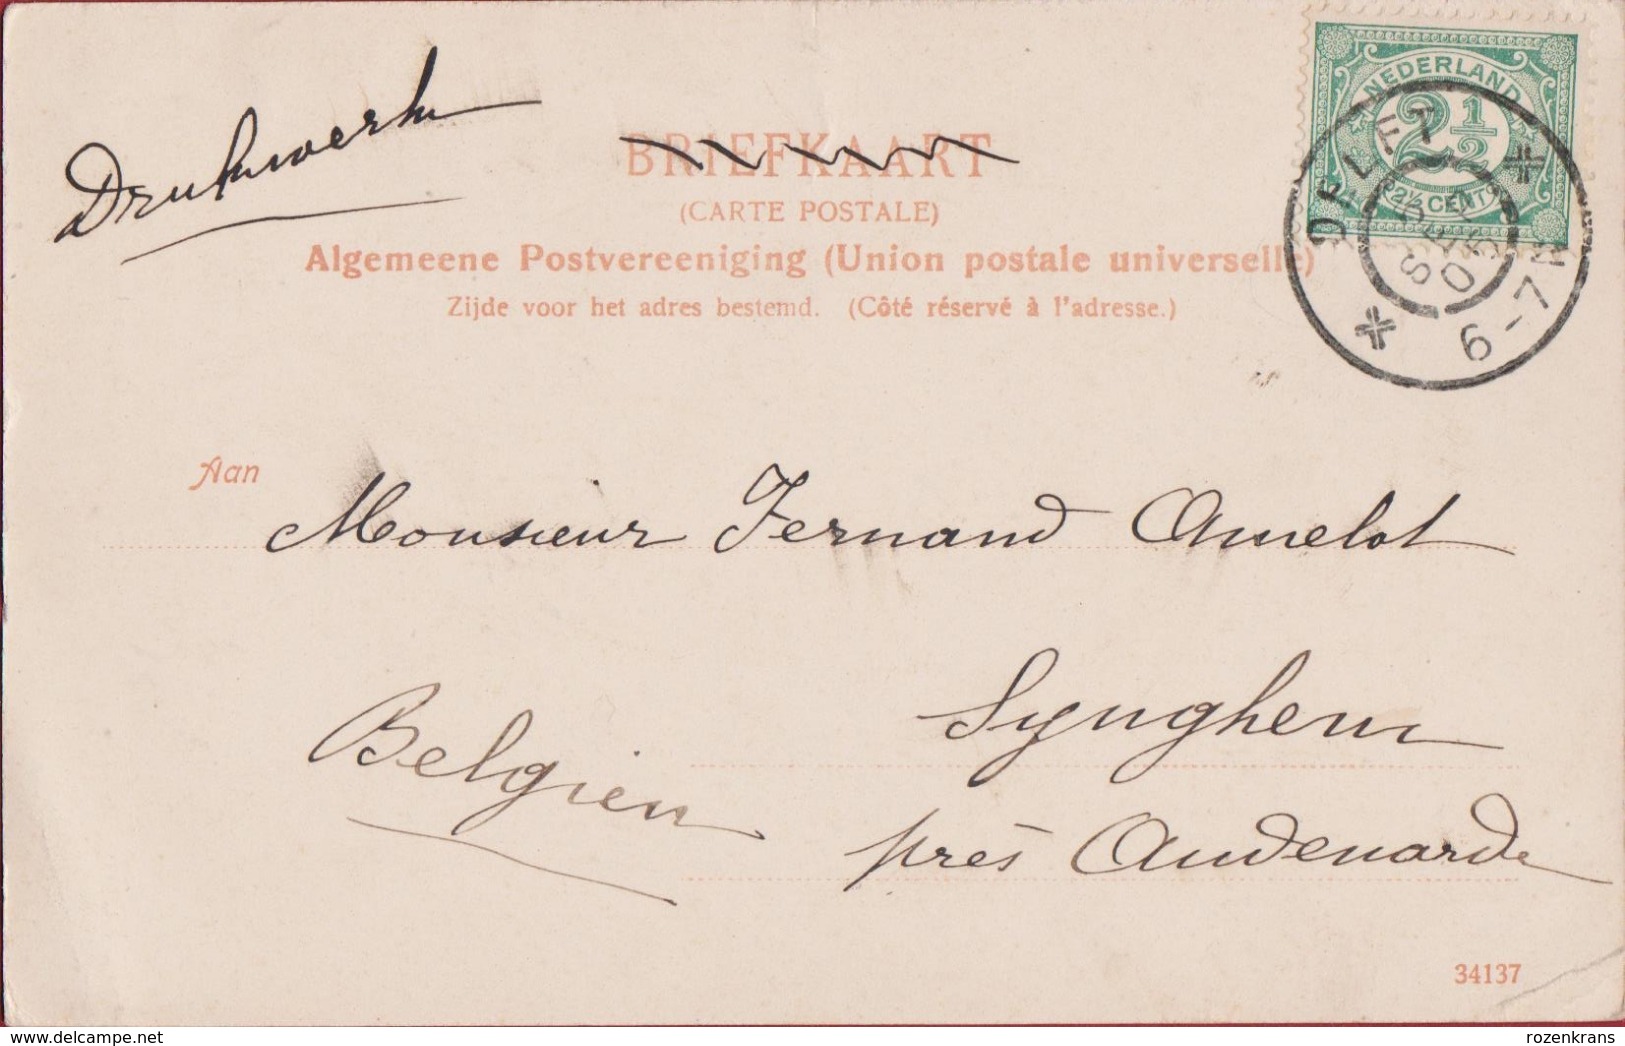 Drukwerk
NEDERLAND
2½
2½ CENT
DELFT
5 SEP 05
6-7N
BRIEFKAART
(CARTE POSTALE)
Algemeene Postvereeniging (Union postale universelle)
Zijde voor het adres bestemd. (Côté réservé à l'adresse.)
Aan
Monsieur Fernand Amelot
Synghem
Belgien
près Audenarde
34137
www.delcampe.net
rozenkrans